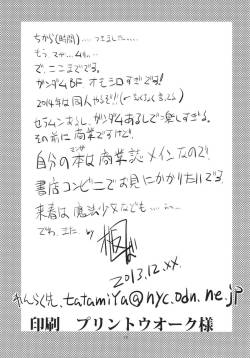 ちから(時間)‥‥つきました‥‥‥
もう、マヂ‥‥ムリ‥‥
で、ここまでです。
ガンダムBF オモシロすぎです!
2014年は同人やるぞ!!
セラムンあるし、ガンダムあるしで楽しすぎる。
その前に商業ですけど。
自分の本は商業誌メインなので
書店コンビニでお見にかかりたいです。
来春は魔法少女なども‥‥‥
でわ、また。
2013.12.xx.
れんらく先. tatamiya@nyc.odn.ne.jp
印刷 プリントウオーク様